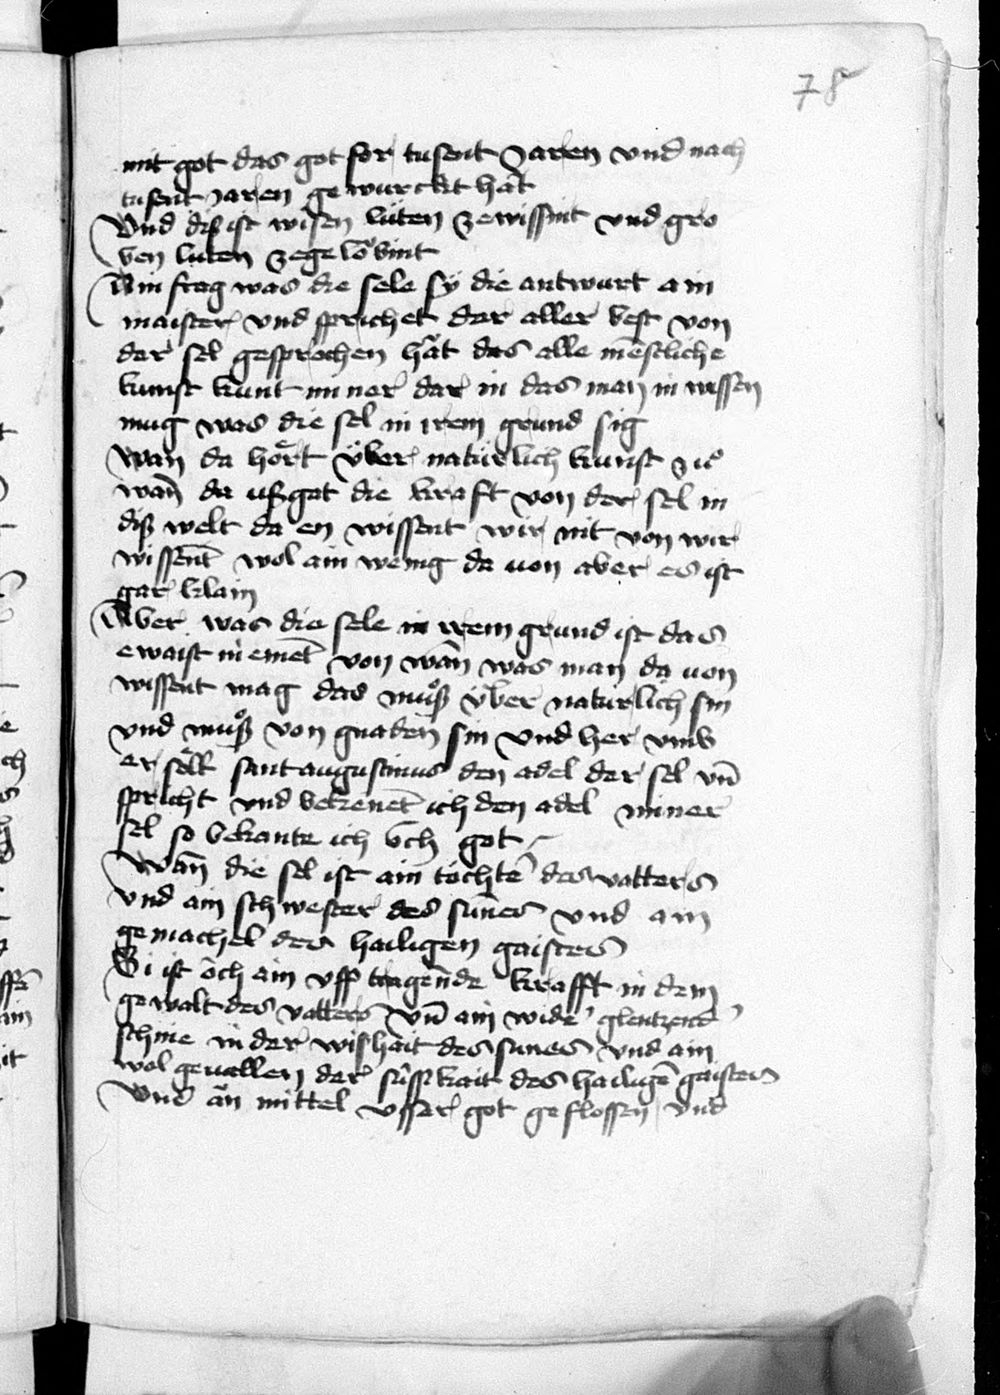 78
mit got das got for tusent Jaren vnd nach
tusent jaren gewurckt hât
Vnd diß ist wisen lüten zewissint vnd gro
ben luten zegelobint
Ain frag was die sele sÿ die antwurt ain
maister vnd sprichet der aller best von
der sel gesprochen hât das alle mēstliche
kunst kunt niner dar in das man in wissen
mug was die sel in irem grund sig
Wan da hört über natürlich kunst zuͦ
wan̄ da ußgat die kraft von der sel in
diß welt da en wissent wir nit von wir
wissent wol ain wenig da uon aber es ist
gar klain
Aber was die sele in irem grund ist das
ewaist niemet von wan̄ was man da uon
wissent mag das muͦß über natürlich sin
vnd muͦß von gnaden sin vnd her vmb
er sant augustinus den adel der sel vn̄
spricht vnd bekenet ich den adel miner
sel so bekante ich och got
Wan̄ die sel ist ain töchte des vatters
vnd ain schwester des sunes vnd ain
gemachel des hailigen gaistes
Si ist och ain vff tragende krafft in dem
gewalt des vatters vn̄ ain wide' glentzend'
schine in der wishait des sunes vnd ain
wol geuallen der süssikait des hailigē gaistes
Vnd ân mittel vsser got geflossen vnd